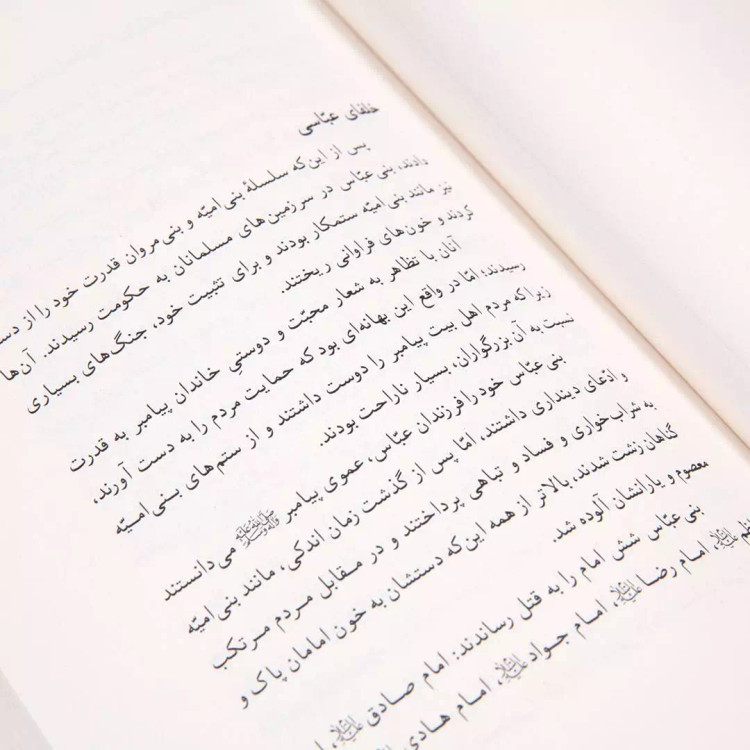 خلفای عبّاسی
پس از این‌که سلسلهٔ بنی‌امیّه و بنی‌مروان قدرت خود را از دست
دادند، بنی‌عبّاس در سرزمین‌های مسلمانان به حکومت رسیدند. آن‌ها
نیز مانند بنی‌امیّه ستمکار بودند و برای تثبیت خود، جنگ‌های بسیاری
کردند و خون‌های فراوانی ریختند.
آنان با تظاهر به شعار محبّت و دوستی خاندان پیامبر به قدرت
رسیدند؛ امّا در واقع این بهانه‌ای بود که حمایت مردم را به دست آورند،
زیرا که مردم اهل بیت پیامبر را دوست داشتند و از ستم‌های بنی‌امیّه
نسبت به آن بزرگواران، بسیار ناراحت بودند.
بنی‌عبّاس خود را فرزندان عبّاس، عموی پیامبر ﷺ می‌دانستند
و ادّعای دینداری داشتند، امّا پس از گذشت زمان اندکی، مانند بنی‌امیّه
به شراب‌خواری و فساد و تباهی پرداختند و در مقابل مردم مرتکب
گناهان زشت شدند، بالاتر از همه این که دستشان به خون امامان پاک و
معصوم و یارانشان آلوده شد.
بنی‌عبّاس شش امام را به قتل رساندند: امام صادق علیه‌السلام،
علیه‌السلام، امام رضا علیه‌السلام، امام جواد علیه‌السلام، امام هادی